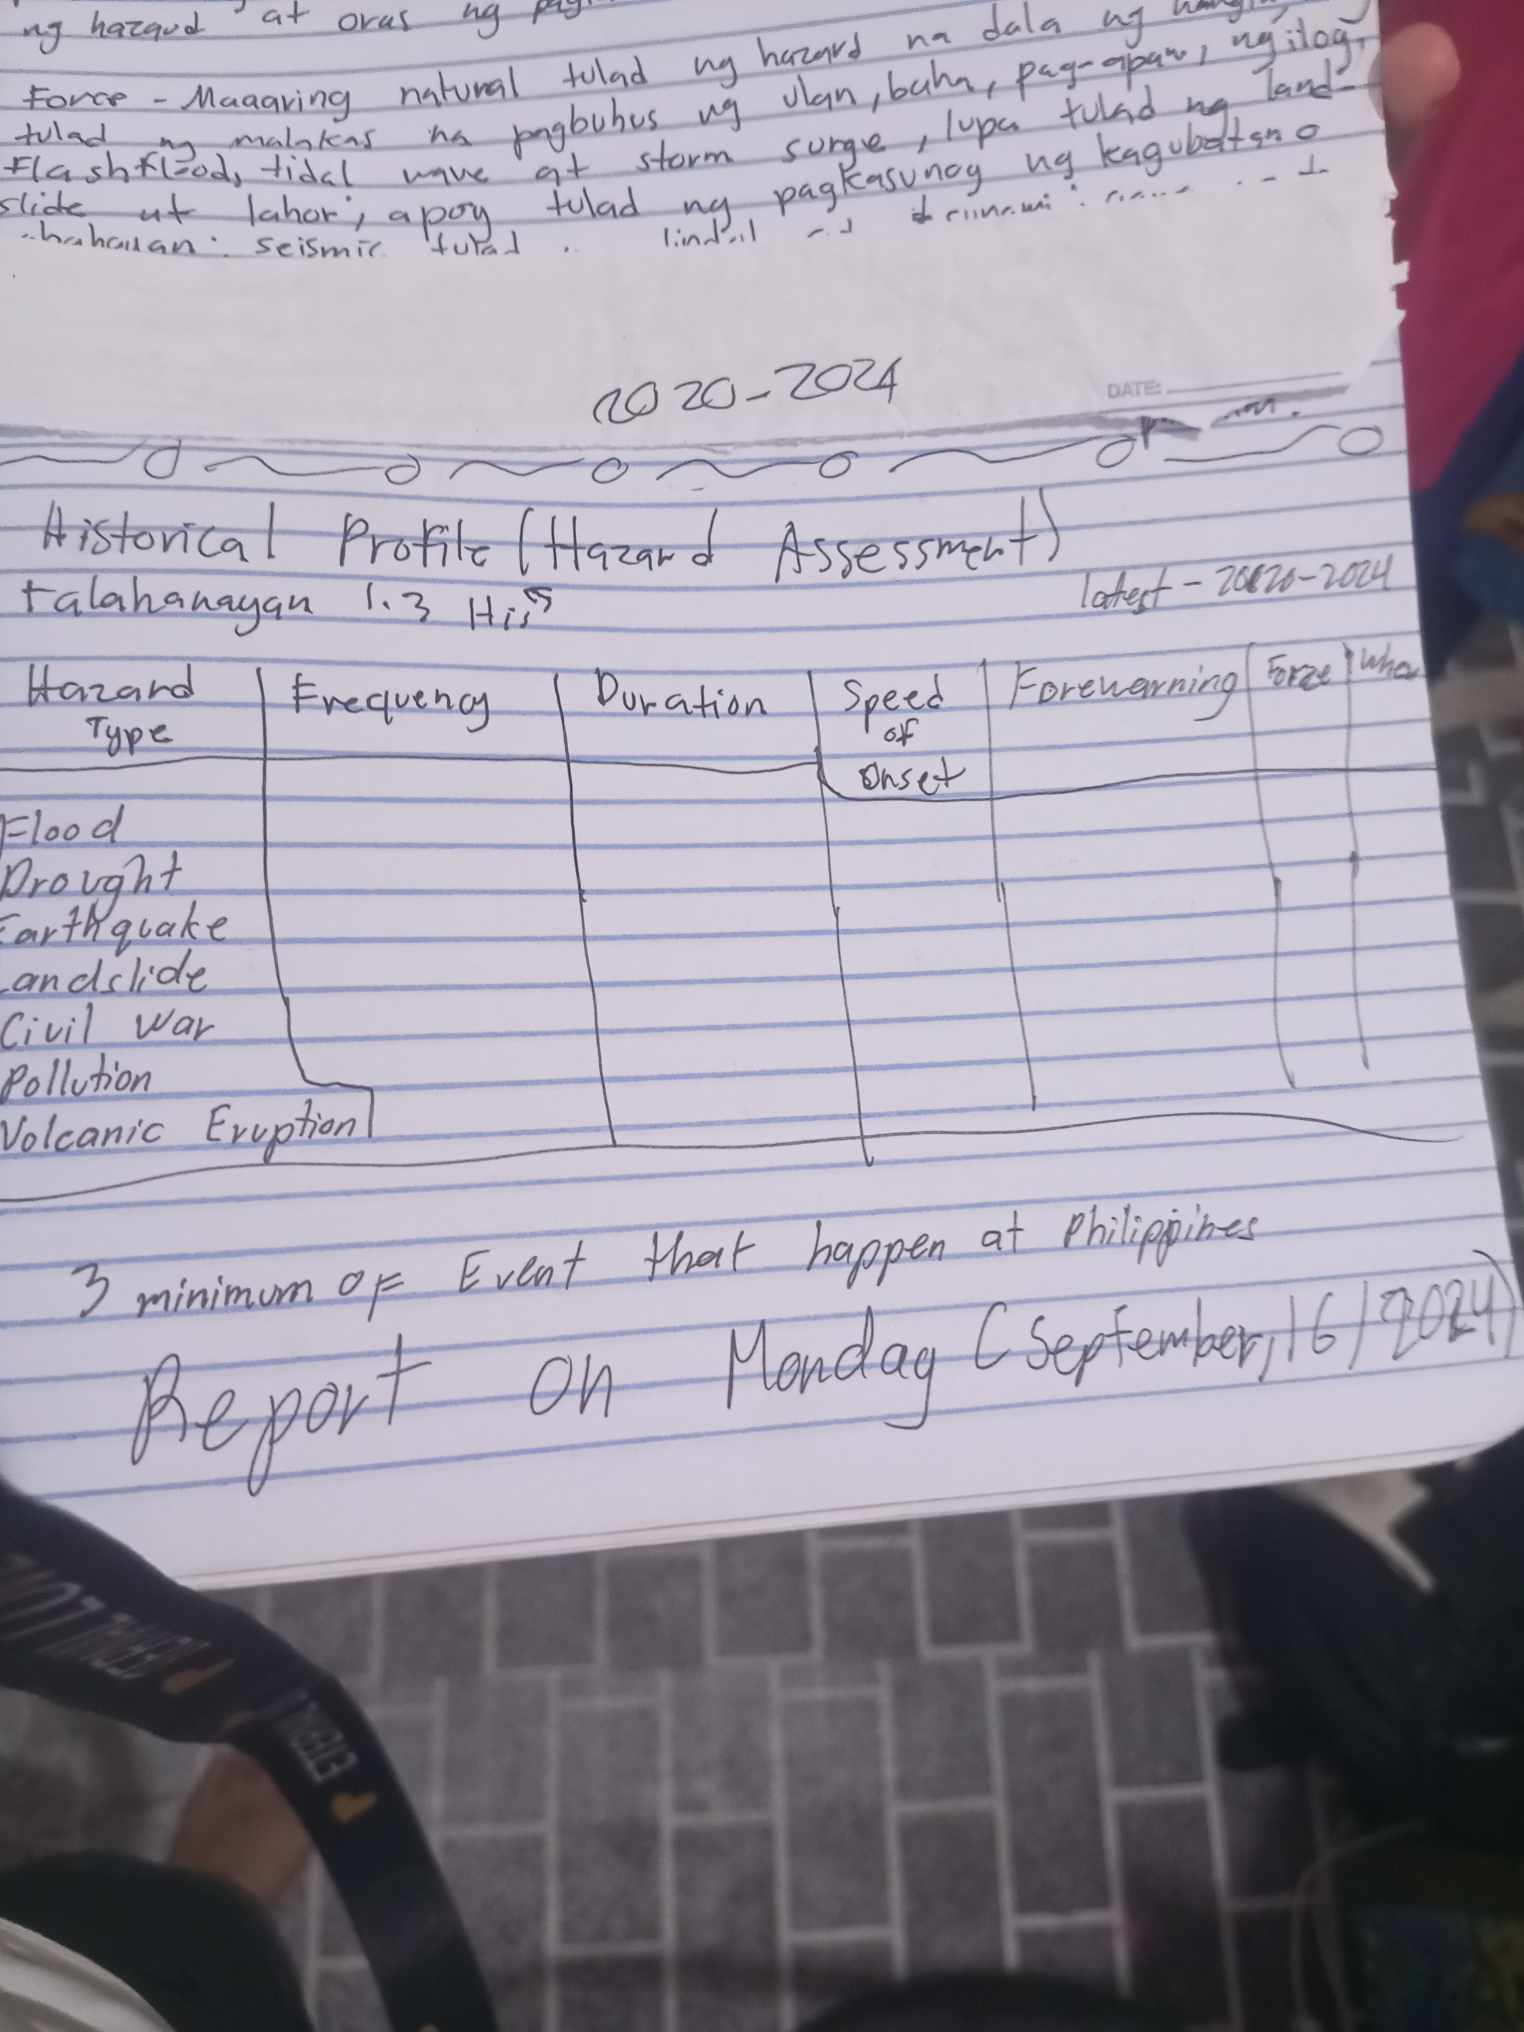 ng hazard at oras ng
Force - Maaaring natural tulad ng hazard na dala ng
tulad ng malakas na pagbuhos ng ulan, baha, pag-apaw, ng ilog,
flashflood, tidal wave at storm surge, lupa tulad ng land-
slide at lahar, apoy tulad ng pagkasunog ng kagubatan o
seismic tulad
2020-2024
DATE:
Historical Profile (Hazard Assessment)
talahanayan 1.3 His
latest - 2020-2024
Hazard Type Frequency Duration Speed of Onset Forewarning Force When
Flood
Drought
Earthquake
Landslide
Civil War
Pollution
Volcanic Eruption
3 minimum OF Event that happen at Philippines
Report on Monday (September, 16/2024)